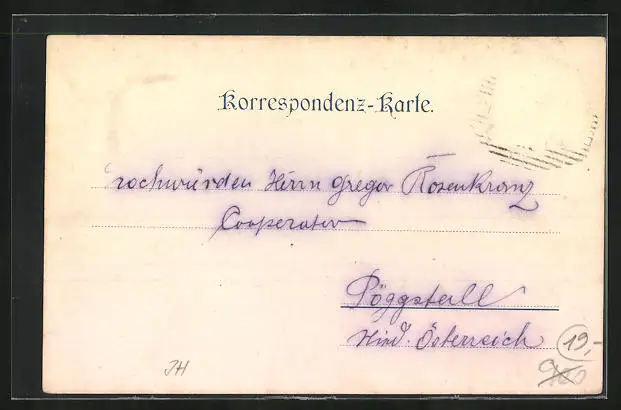 Korrespondenz-Karte.
Hochwürden Herrn Gregor Rosenkranz
Cooperator
Pöggstall
Nied. Österreich
19,-
JH